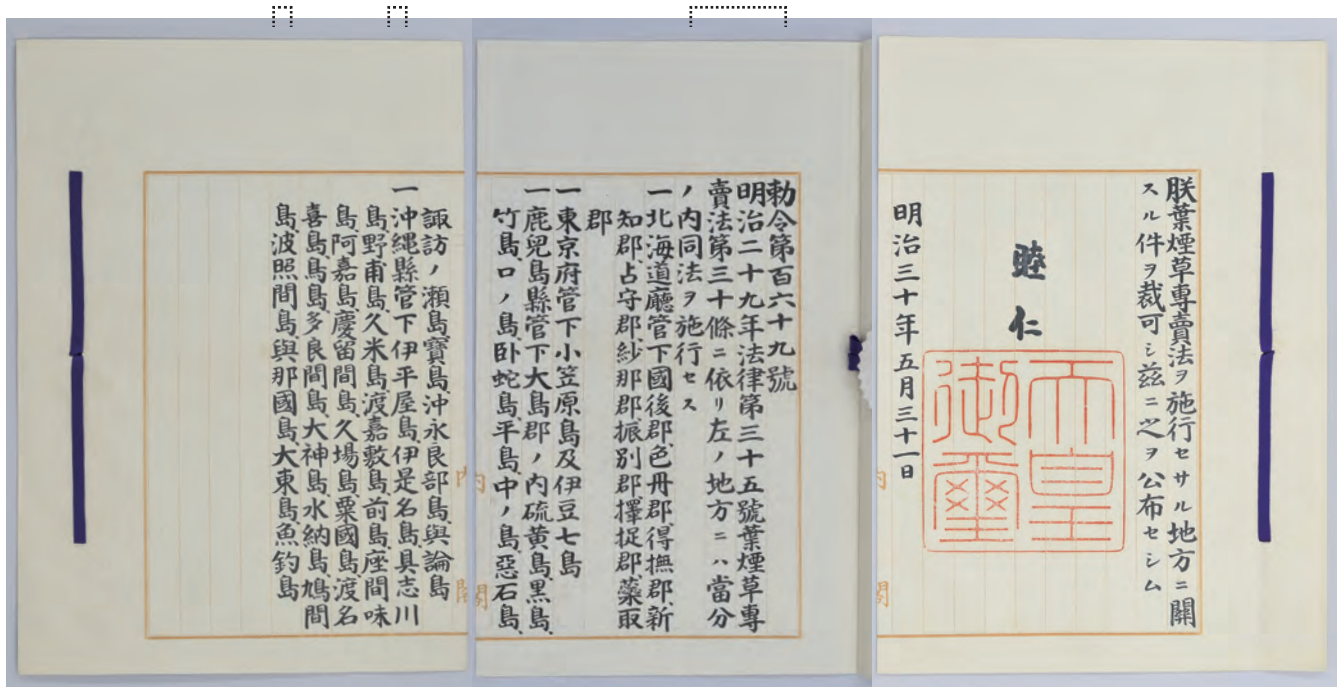 朕葉煙草專賣法ヲ施行セサル地方ニ關
スル件ヲ裁可シ茲ニ之ヲ公布セシム
睦仁
天皇
御璽
明治三十年五月三十一日
內閣
勅令第百六十九號
明治二十九年法律第三十五號葉煙草專
賣法第三十條ニ依リ左ノ地方ニハ當分
ノ內同法ヲ施行セス
一北海道廳管下國後郡、色丹郡、得撫郡、新
知郡、占守郡、紗那郡、振別郡、擇捉郡、蘂取
郡
一東京府管下小笠原島及伊豆七島
一鹿兒島縣管下大島郡ノ內硫黃島、黑島、
竹島、口ノ島、臥蛇島、平島、中ノ島、惡石島、
內閣
諏訪ノ瀨島、寶島、沖永良部島、與論島
一沖繩縣管下伊平屋島、伊是名島、具志川
島、野甫島、久米島、渡嘉敷島、前島、座間味
島、阿嘉島、慶留間島、久場島、粟國島、渡名
喜島、鳥島、多良間島、大神島、水納島、鳩間
島、波照間島、與那國島、大東島、魚釣島